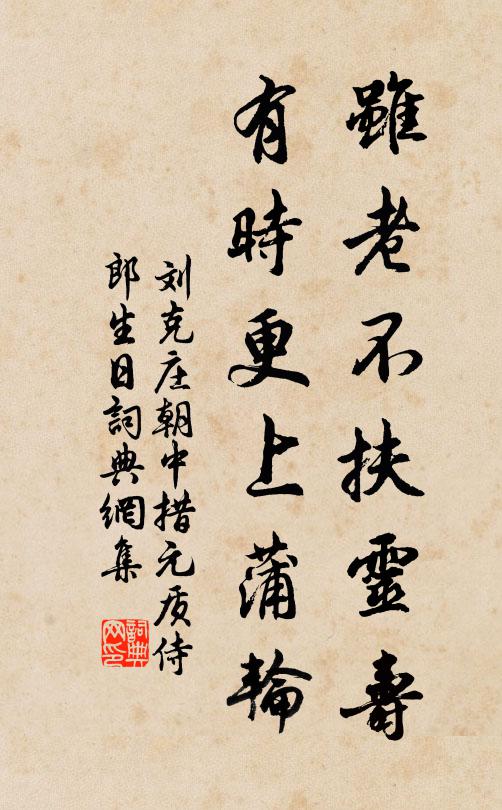 雖老不扶靈壽
有時更上蒲輪
刘克庄朝中措元质侍
郎生日詞典網集
詞典網印